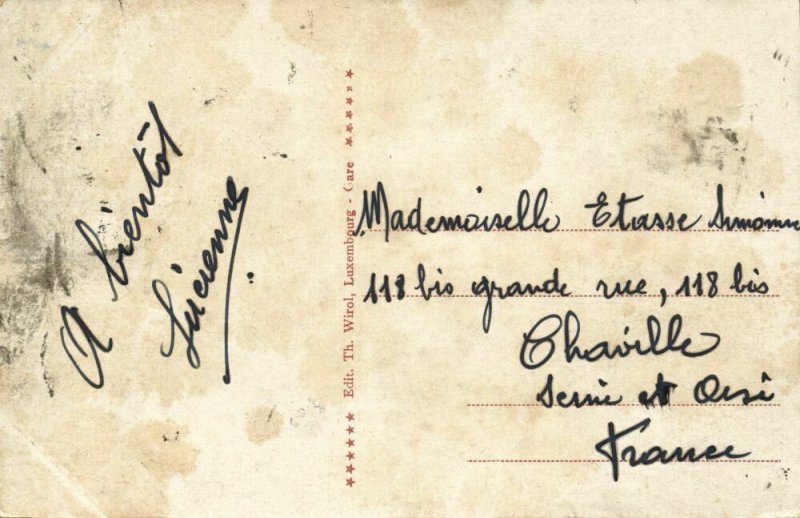 A bientôt
Lucienne
★★★★★★ Edit. Th. Wirol, Luxembourg - Gare ★★★★★★
Mademoiselle Etasse Simonne
118 bis grande rue, 118 bis
Chaville
Seine et Oise
France